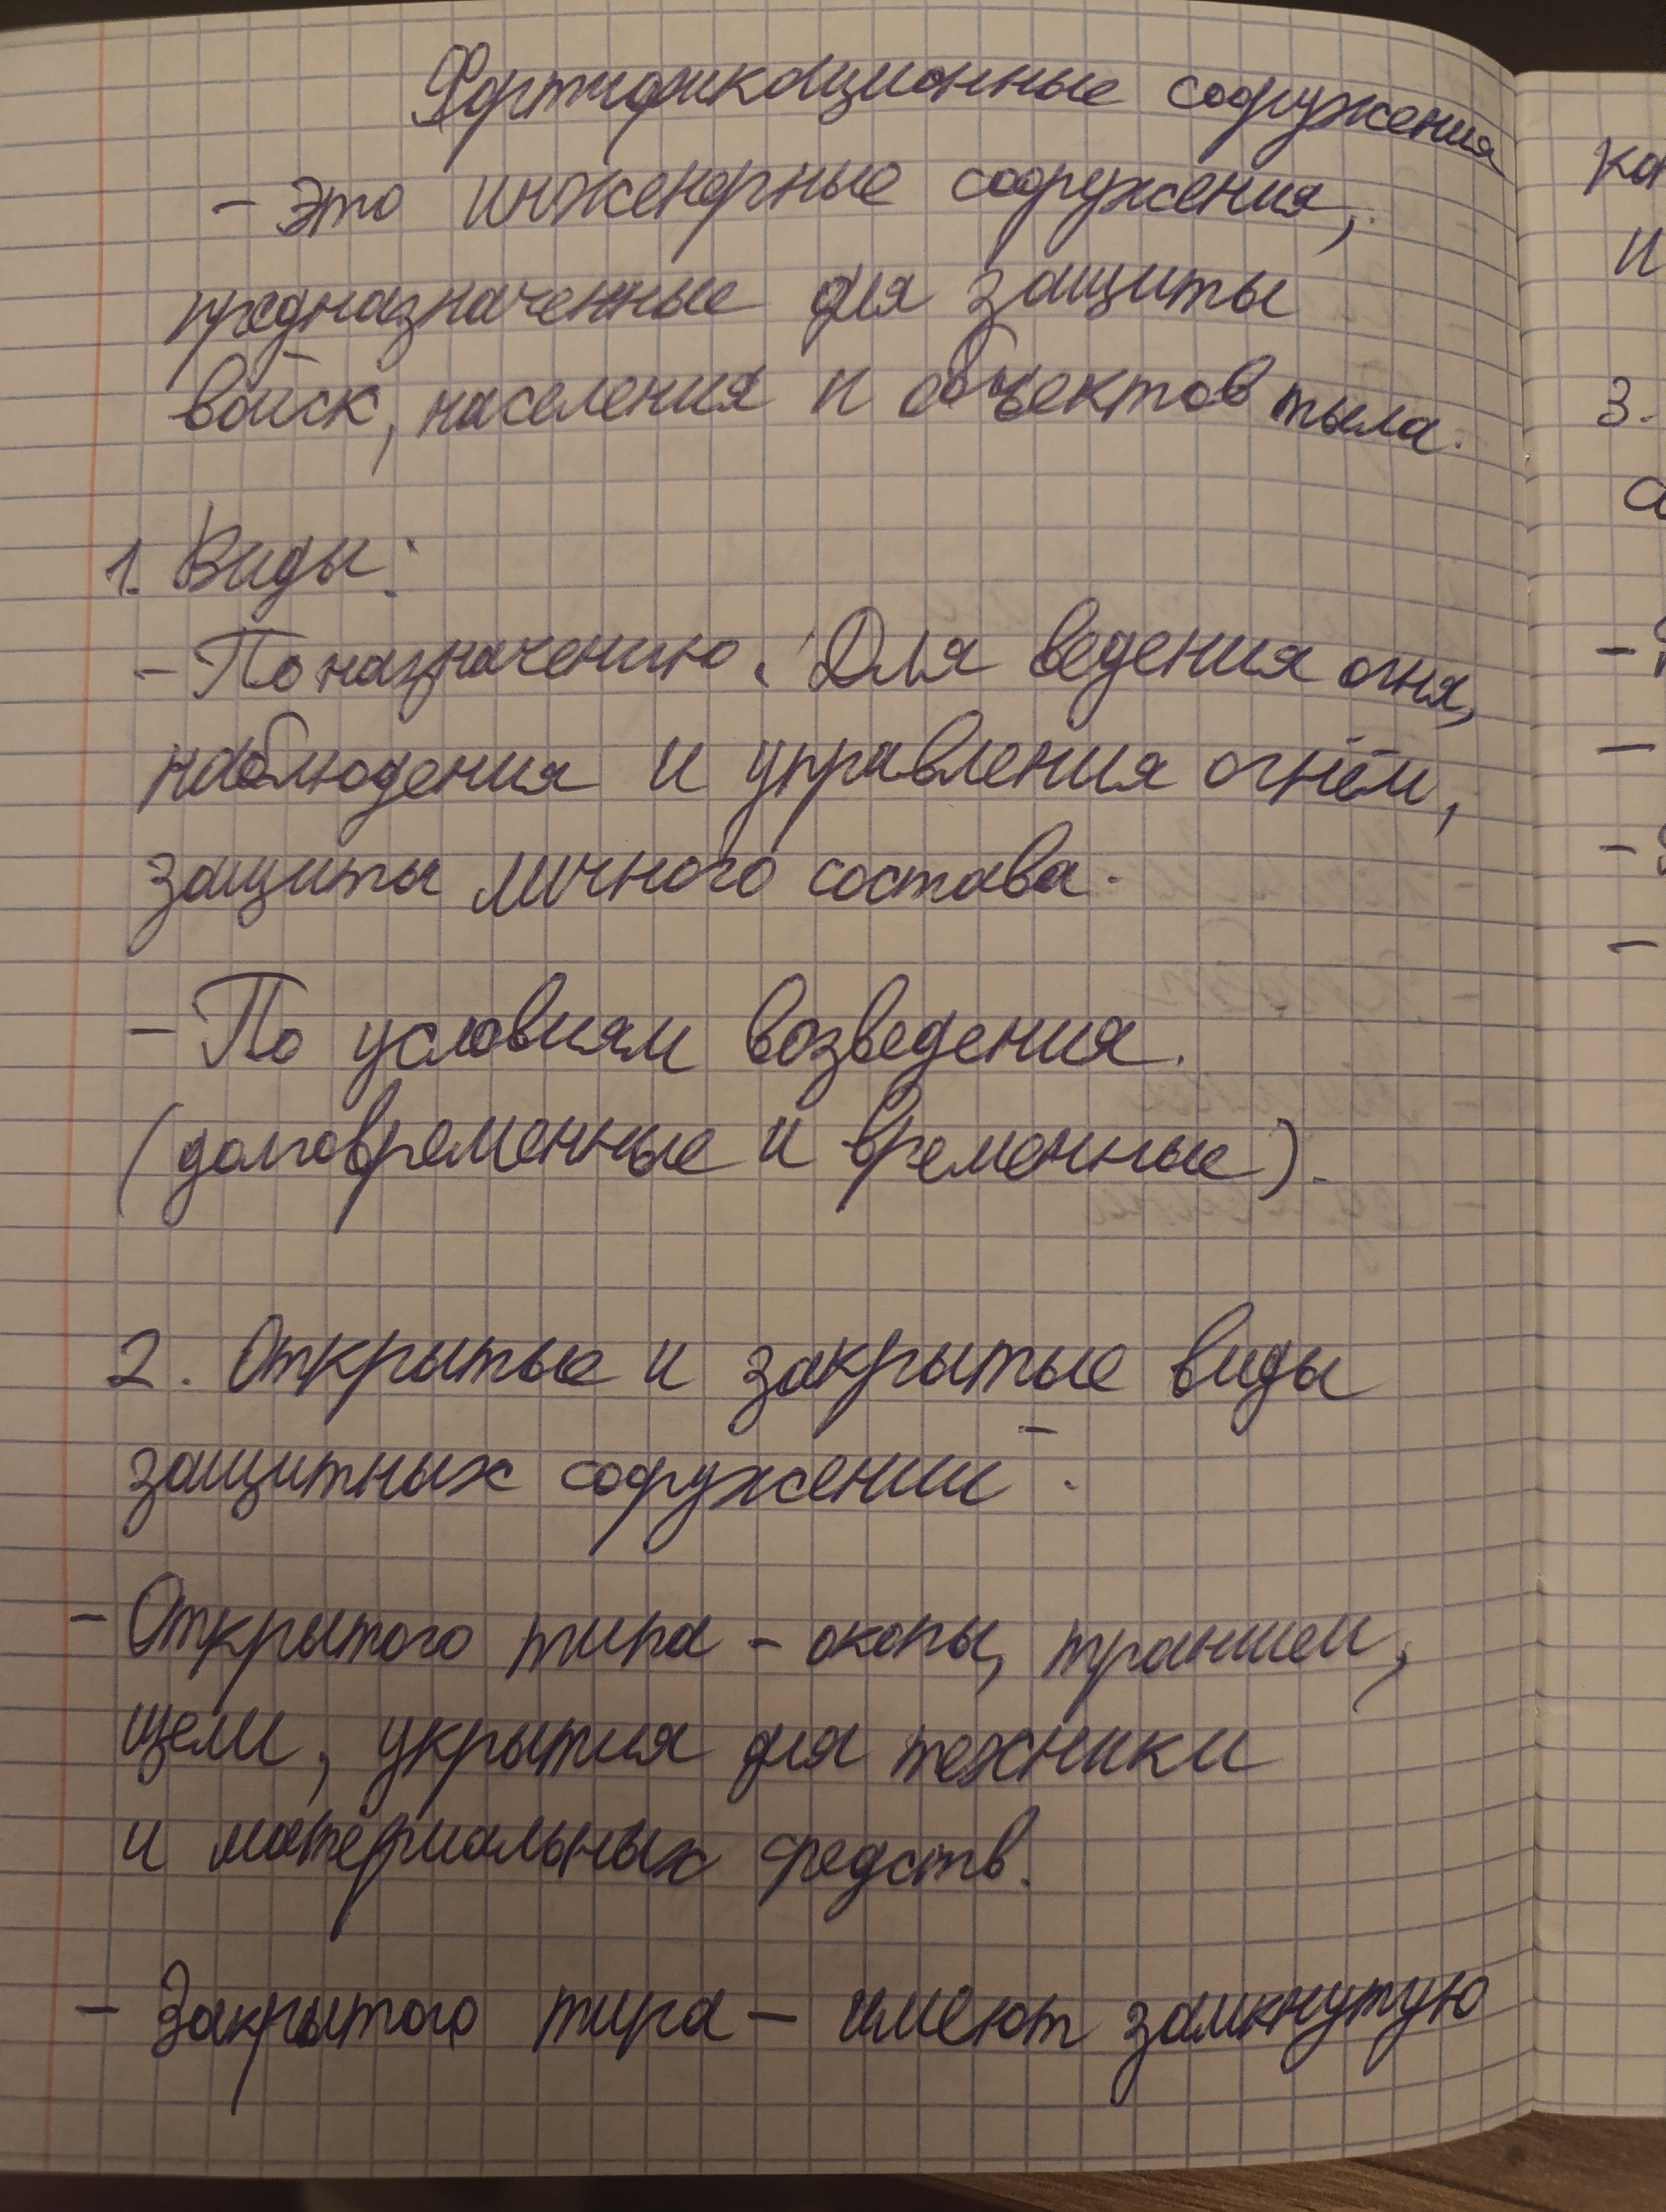 Фортификационные сооружения
- это инженерные сооружения,
предназначенные для защиты
войск, населения и объектов тыла.
1. Виды:
- По назначению. Для ведения огня,
наблюдения и управления огнём,
защиты личного состава.
- По условиям возведения.
(долговременные и временные).
2. Открытые и закрытые виды
защитных сооружений.
- Открытого типа - окопы, траншеи,
щели, укрытия для техники
и материальных средств.
- Закрытого типа - имеют замкнутую
ка
и
3.